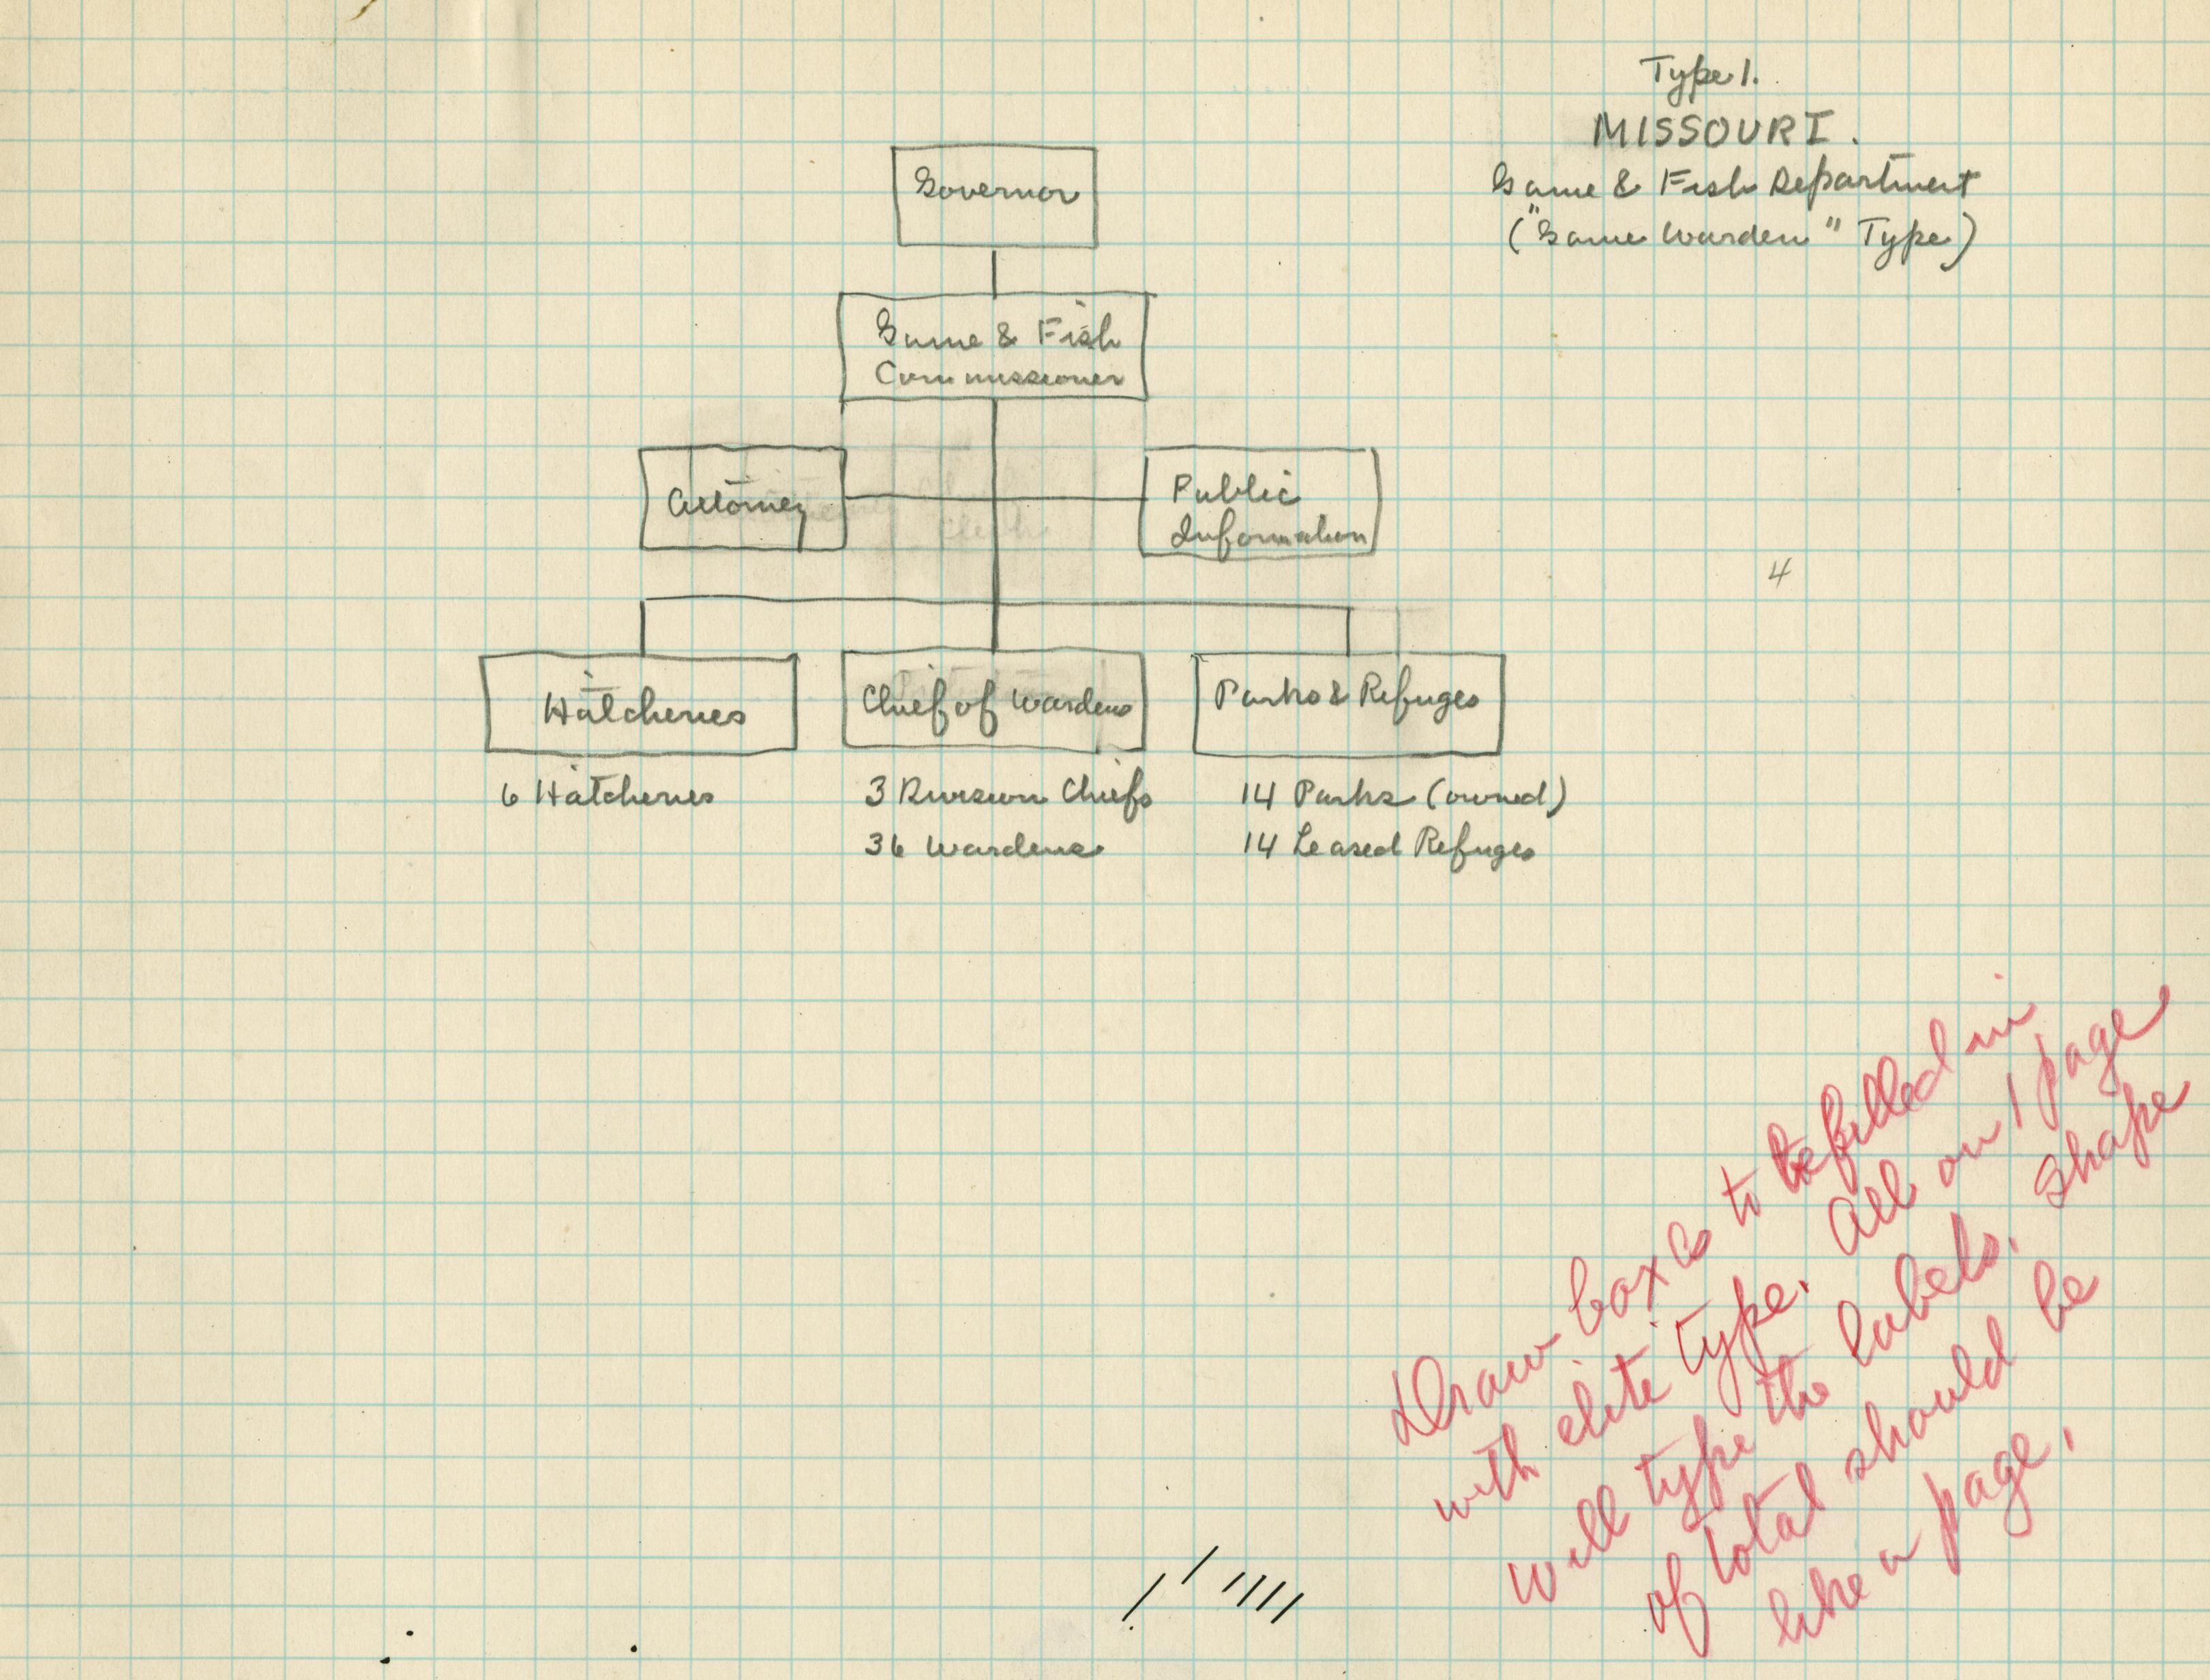 Type 1.
MISSOURI.
Game & Fish Department
("Game Warden" Type)
Governor
Game & Fish
Commissioner
Attorney
Public
Information
4
Hatcheries
Chief of Wardens
Parks & Refuges
6 Hatcheries
3 Division Chiefs
36 Wardens
14 Parks (owned)
14 Leased Refuges
Draw boxes to be filled in
with elite type. All on 1 page
will type the labels. Shape
of total should be
like a page.